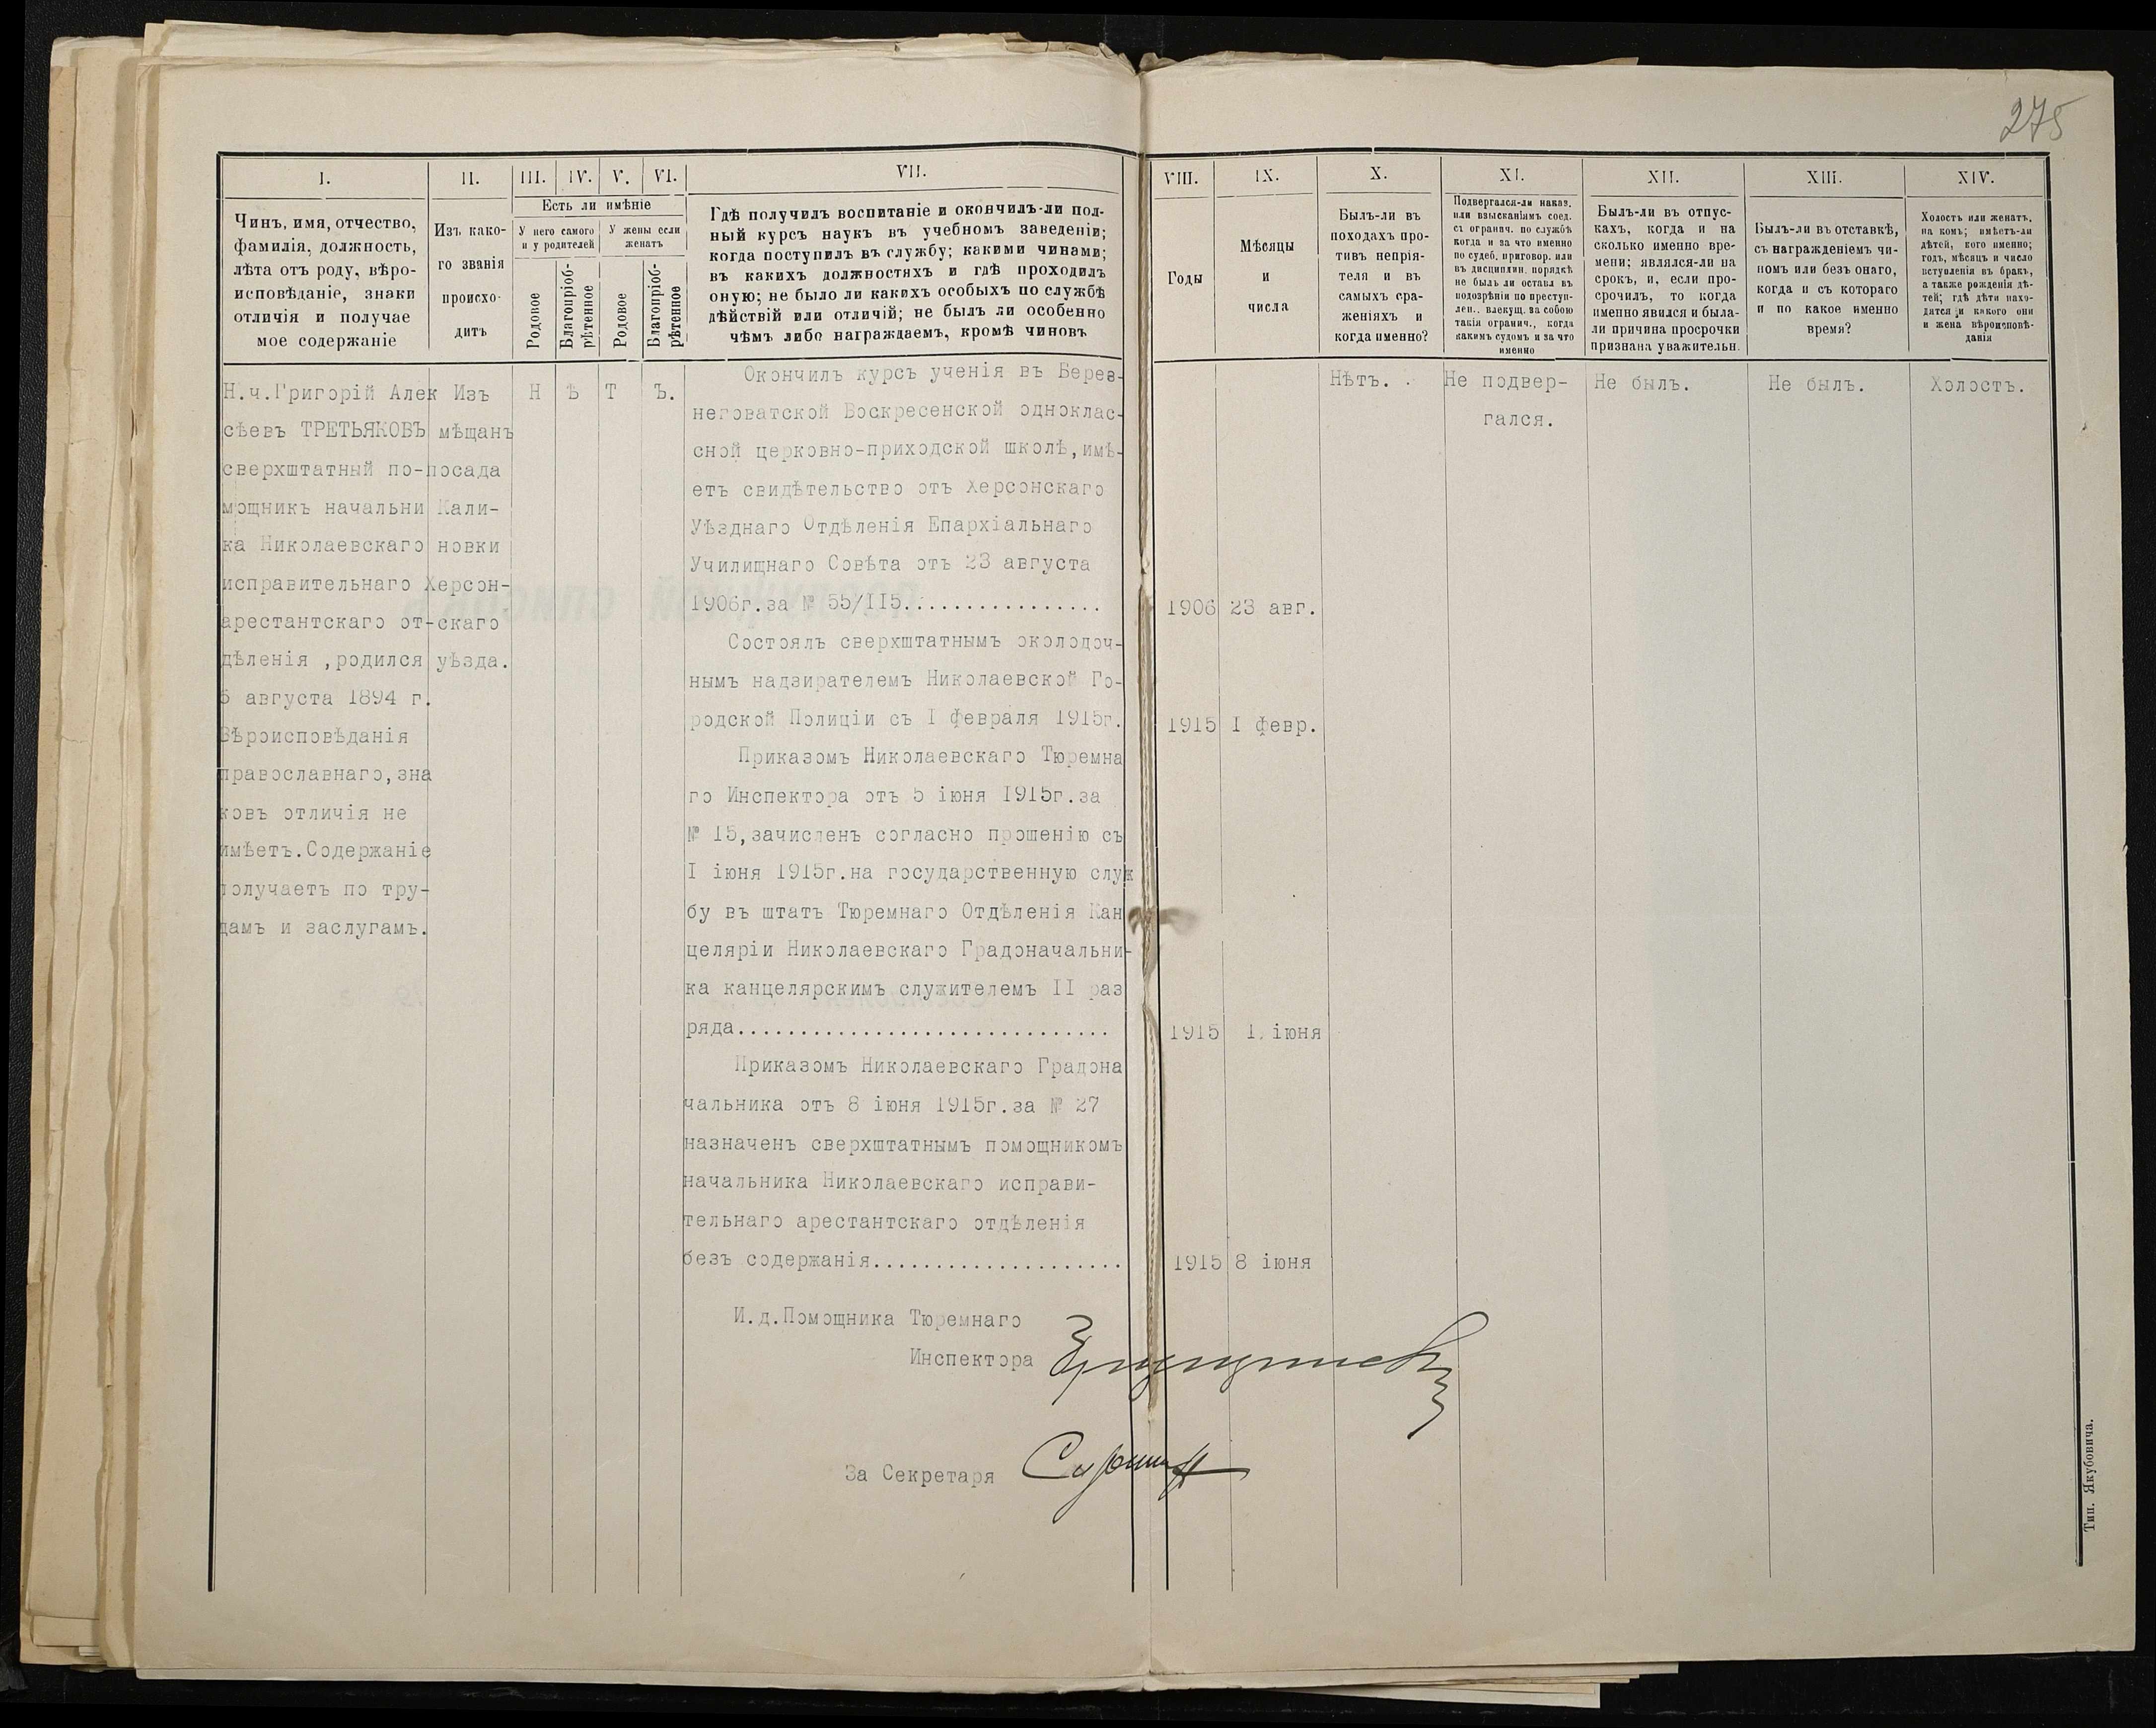 275
I.
II.
III.
IV.
V.
VI.
VII.
VIII.
IX.
X.
XI.
XII.
XIII.
XIV.
Чинъ, имя, отчество,
фамилія, должность,
лѣта отъ роду, вѣро-
исповѣданіе, знаки
отличія и получае
мое содержаніе
Изъ како-
го званія
происхо-
дитъ
Есть ли имѣніе
У него самого
и у родителей
У жены если
женатъ
Родовое
Благопріоб-
рѣтенное
Родовое
Благопріоб-
рѣтенное
Гдѣ получилъ воспитаніе и окончилъ-ли пол-
ный курсъ наукъ въ учебномъ заведеніи;
когда поступилъ въ службу; какими чинами;
въ какихъ должностяхъ и гдѣ проходилъ
оную; не было ли какихъ особыхъ по службѣ
дѣйствій или отличій; не былъ ли особенно
чѣмъ либо награждаемъ, кромѣ чиновъ
Годы
Мѣсяцы
и
числа
Былъ-ли въ
походахъ про-
тивъ непрія-
теля и въ
самыхъ сра-
женіяхъ и
когда именно?
Подвергался-ли наказ.
или взысканіямъ соед.
съ огранич. по службѣ
когда и за что именно
по судеб. приговор. или
въ дисциплин. порядкѣ
не былъ ли оставл въ
подозрѣніи по преступ-
лен., влекущ. за собою
такія огранич., когда
какимъ судомъ и за что
именно
Былъ-ли въ отпус-
кахъ, когда и на
сколько именно вре-
мени; являлся-ли на
срокъ, и, если про-
срочилъ, то когда
именно явился и была-
ли причина просрочки
признана уважительн.
Былъ-ли въ отставкѣ,
съ награжденіемъ чи-
номъ или безъ онаго,
когда и съ котораго
и по какое именно
время?
Холостъ или женатъ,
на комъ; имѣетъ-ли
дѣтей, кого именно;
годъ, мѣсяцъ и число
вступленія въ бракъ,
а также рожденія дѣ-
тей; гдѣ дѣти нахо-
дятся и какого они
и жена вѣроисповѣ-
данія
Н.ч.Григорій Алек
сѣевъ ТРЕТЬЯКОВЪ
сверхштатный по-
мощникъ начальни
ка Николаевскаго
исправительнаго
арестантскаго от-
дѣленія ,родился
5 августа 1894 г.
Вѣроисповѣданія
православнаго,зна
ковъ отличія не
имѣетъ.Содержаніе
получаетъ по тру-
дамъ и заслугамъ.
Изъ
мѣщанъ
посада
Кали-
новки
Херсон-
скаго
уѣзда.
Н Ѣ Т Ъ.
Окончилъ курсъ ученія въ Берез-
неговатской Воскресенской однoклас-
сной церковно-приходской школѣ,имѣ-
етъ свидѣтельство отъ Херсонскаго
Уѣзднаго Отдѣленія Епархіальнаго
Училищнаго Совѣта отъ 23 августа
1906г.за № 55/II5................
Состоялъ сверхштатнымъ околодоч-
нымъ надзирателемъ Николаевской Го-
родской Полиціи съ I февраля 1915г.
Приказомъ Николаевскаго Тюремна
го Инспектора отъ 5 іюня 1915г.за
№ 15,зачисленъ согласно прошенію съ
I іюня 1915г.на государственную служ
бу въ штатъ Тюремнаго Отдѣленія Кан
целяріи Николаевскаго Градоначальни-
ка канцелярскимъ служителемъ II раз
ряда..............................
Приказомъ Николаевскаго Градона
чальника отъ 8 іюня 1915г.за № 27
назначенъ сверхштатнымъ помощникомъ
начальника Николаевскаго исправи-
тельнаго арестантскаго отдѣленія
безъ содержанія....................
И.д.Помощника Тюремнаго
Инспектора
За Секретаря
1906 23 авг.
1915 I февр.
1915 1. іюня
1915 8 іюня
Нѣтъ.
Не подвер-
гался.
Не былъ.
Не былъ.
Холостъ.
Тип. Якубовича.